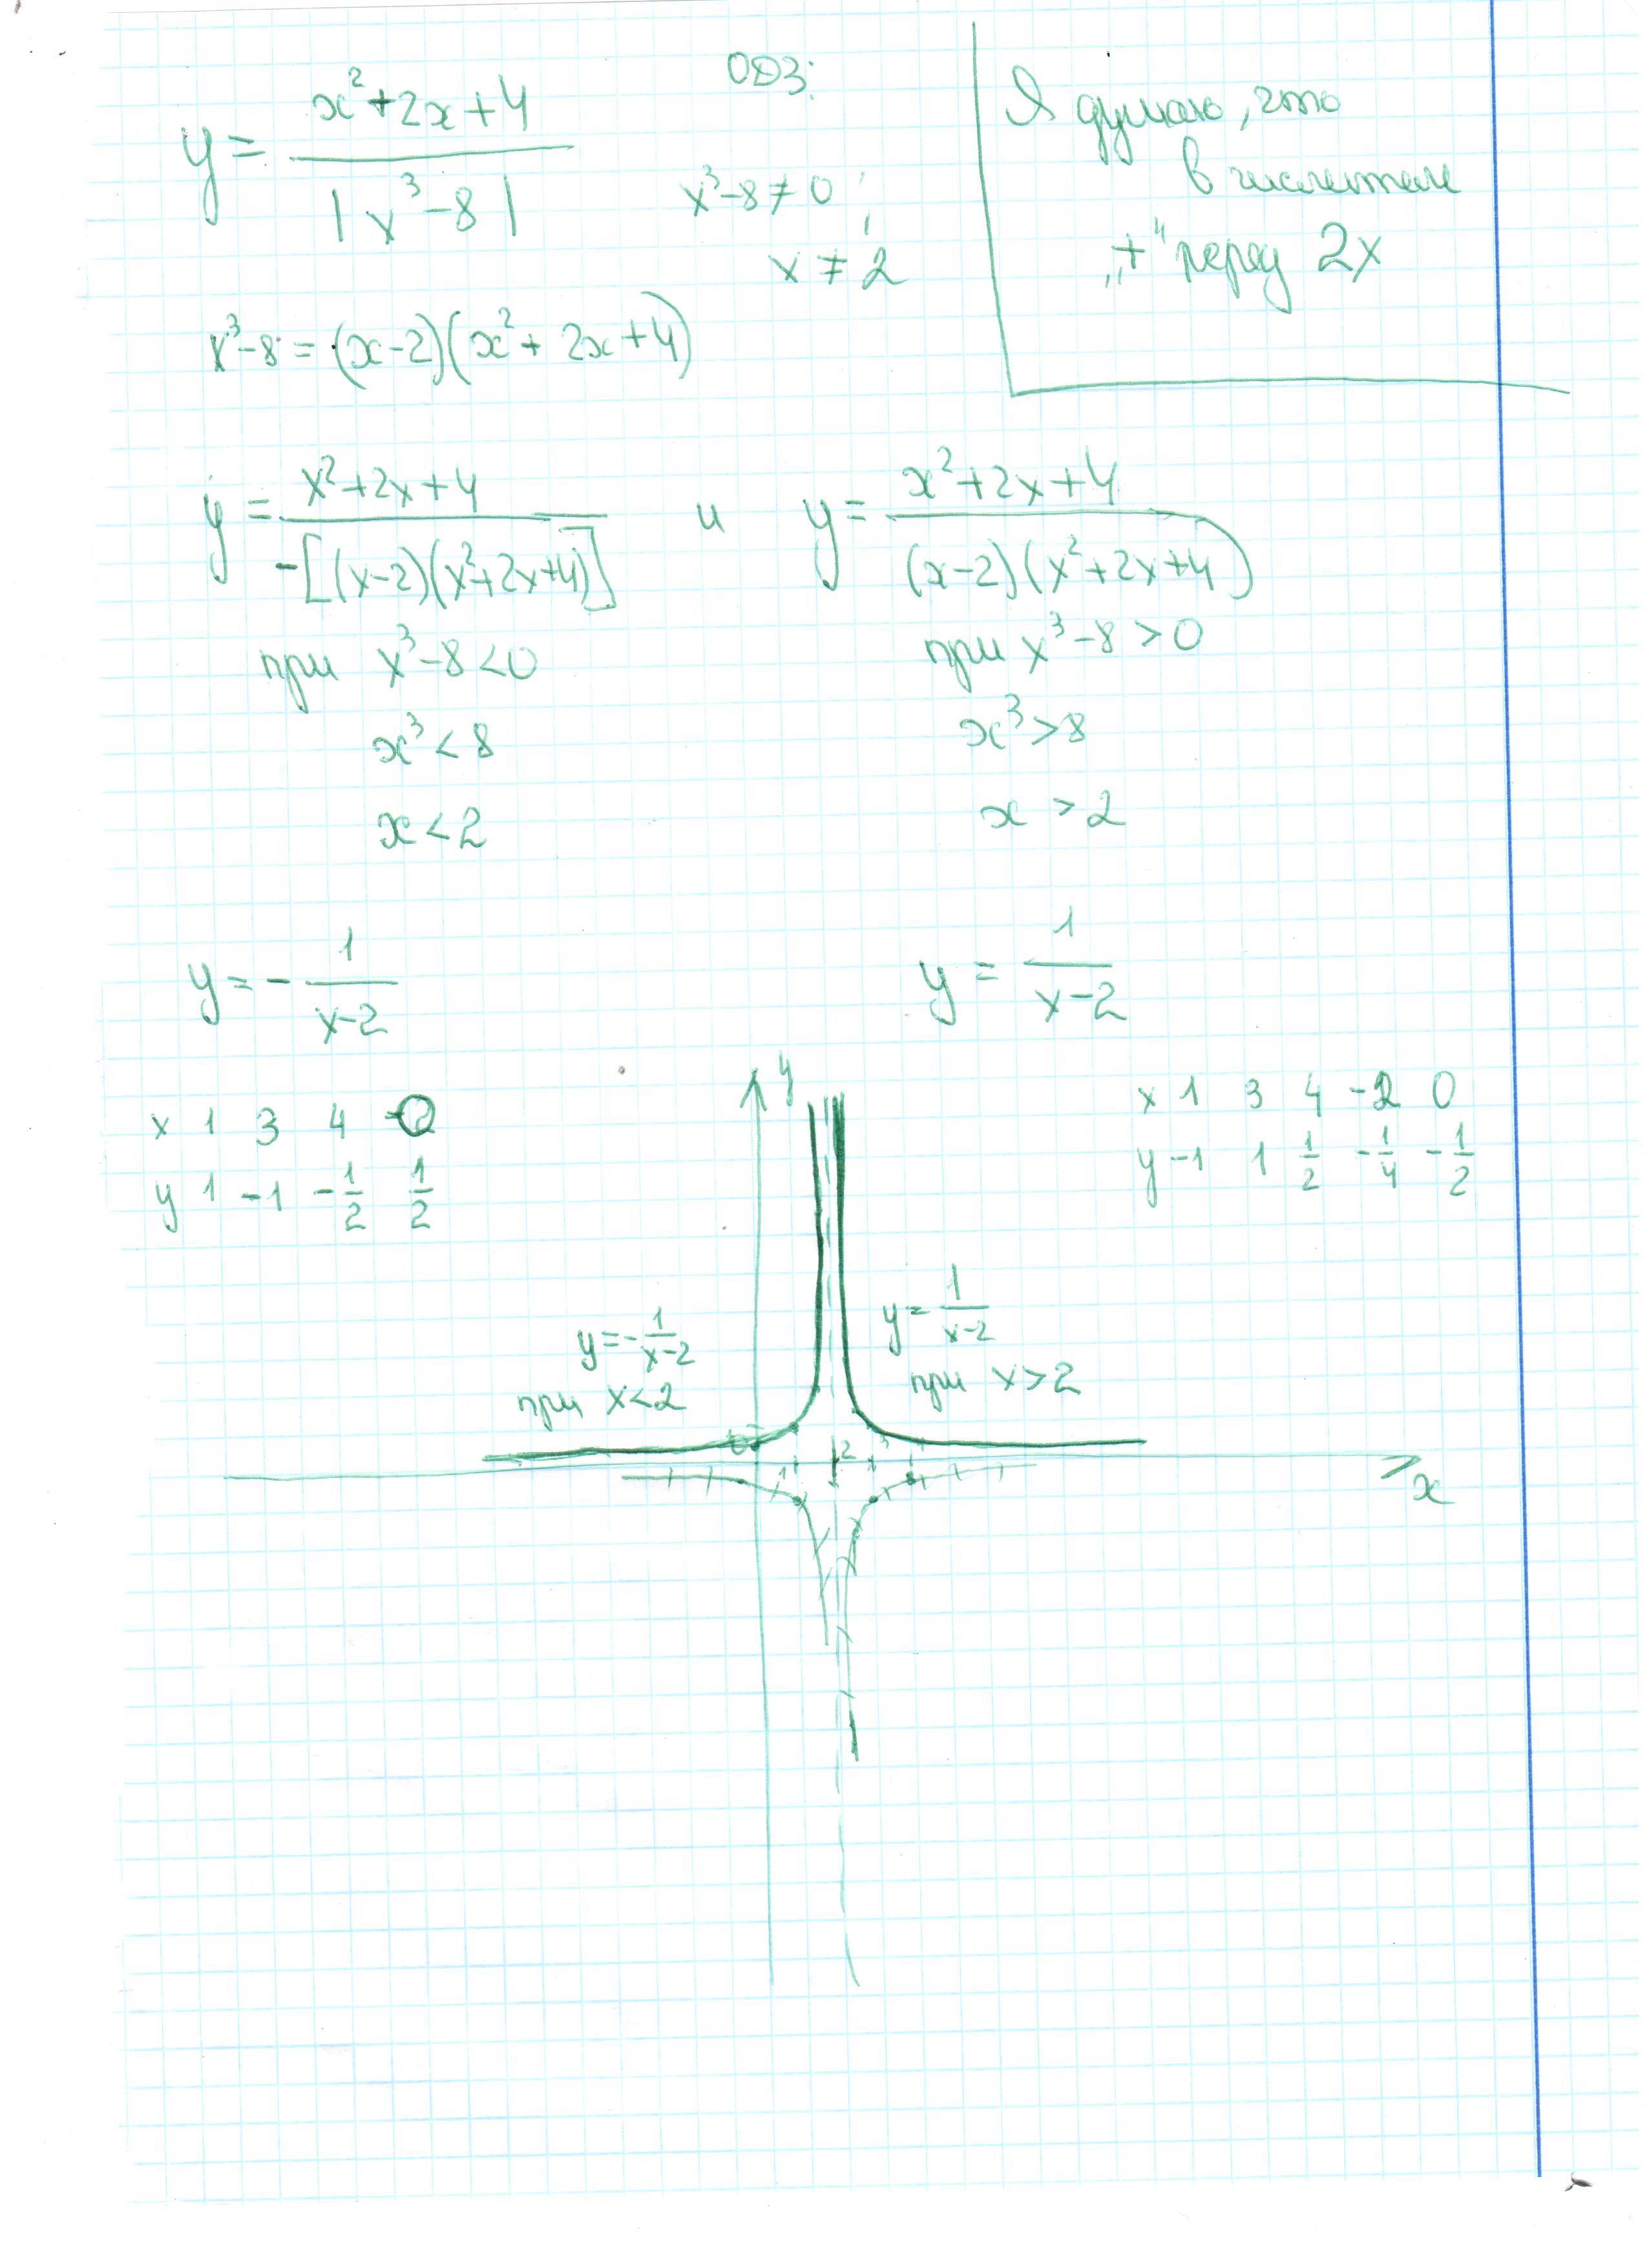 y = x²+2x+4 / |x³-8|
ОДЗ:
x³-8≠0;
x≠2
Я думаю, что
в числителе
„+" перед 2x
x³-8=(x-2)(x²+2x+4)
y = x²+2x+4 / -[(x-2)(x²+2x+4)] и y = x²+2x+4 / (x-2)(x²+2x+4)
при x³-8<0
x³<8
x<2
при x³-8>0
x³>8
x>2
y = - 1/(x-2)
y = 1/(x-2)
y
x 1 3 4 0
y 1 -1 -1/2 1/2
x 1 3 4 -2 0
y -1 1 1/2 -1/4 -1/2
y=-1/(x-2)
при x<2
y=1/(x-2)
при x>2
1 2 3
x